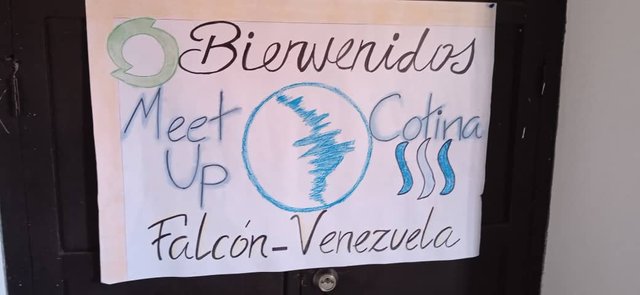 Bienvenidos
Meet Up
Cotina
Falcón-Venezuela